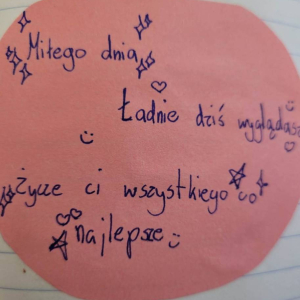 Miłego dnia
Ładnie dziś wyglądasz
Życze ci wszystkiego co
najlepsze